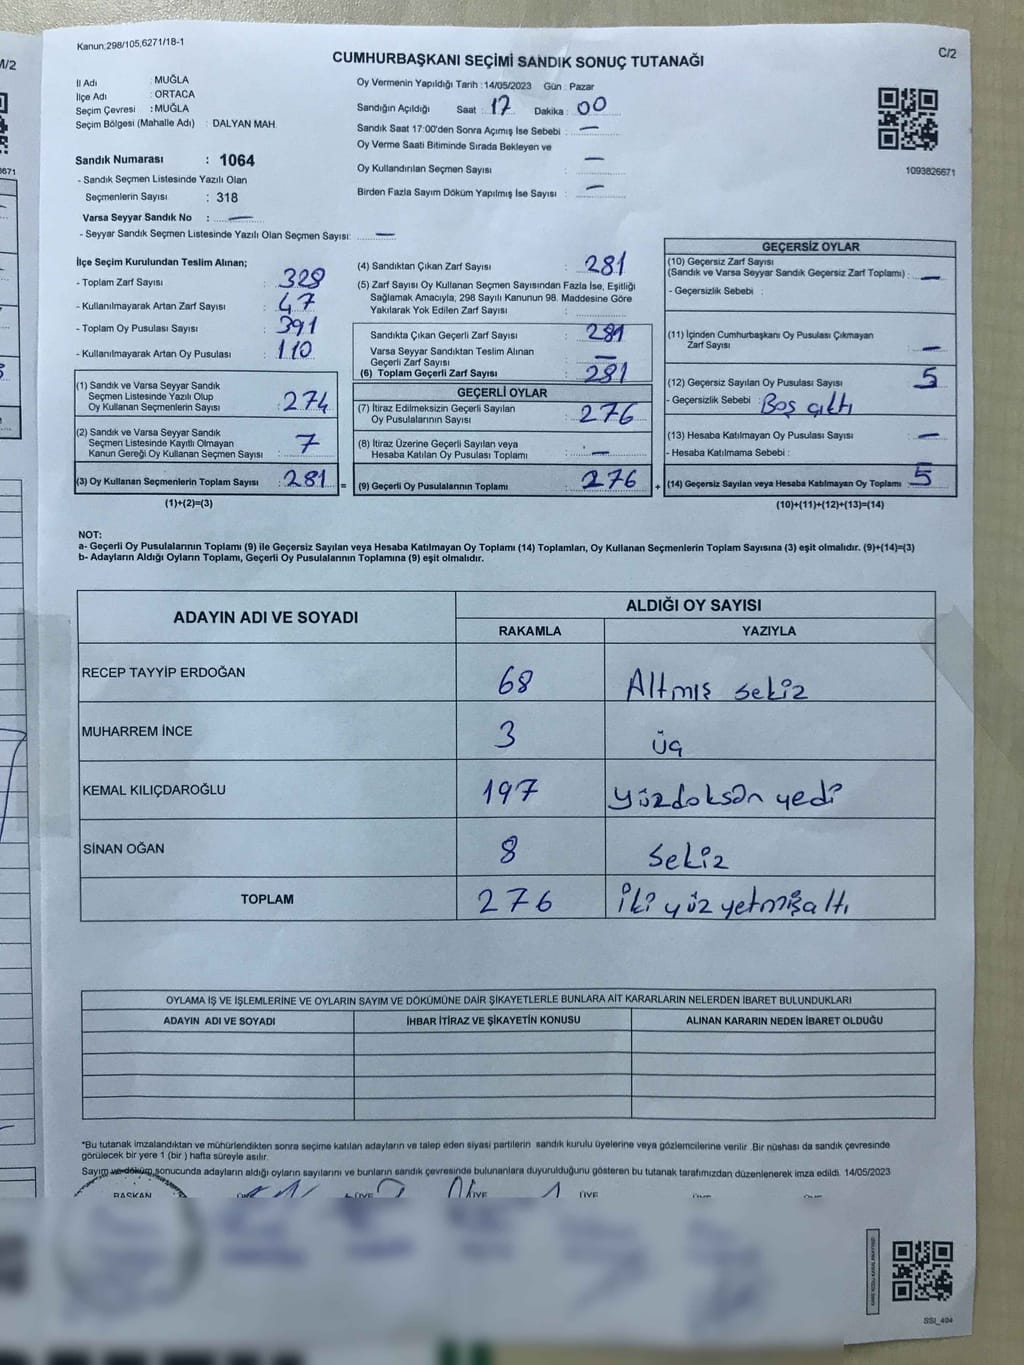 Kanun:298/105,6271/18-1
C/2
CUMHURBAŞKANI SEÇİMİ SANDIK SONUÇ TUTANAĞI
İl Adı : MUĞLA
İlçe Adı : ORTACA
Seçim Çevresi : MUĞLA
Seçim Bölgesi (Mahalle Adı) : DALYAN MAH.
Oy Vermenin Yapıldığı Tarih : 14/05/2023 Gün : Pazar
Sandığın Açıldığı Saat : 17 Dakika : 00
Sandık Saat 17:00'den Sonra Açımış İse Sebebi : —
Oy Verme Saati Bitiminde Sırada Bekleyen ve
Oy Kullandırılan Seçmen Sayısı : —
Birden Fazla Sayım Döküm Yapılmış İse Sayısı : —
1093826671
Sandık Numarası : 1064
- Sandık Seçmen Listesinde Yazılı Olan
Seçmenlerin Sayısı : 318
Varsa Seyyar Sandık No : —
- Seyyar Sandık Seçmen Listesinde Yazılı Olan Seçmen Sayısı: —
İlçe Seçim Kurulundan Teslim Alınan;
- Toplam Zarf Sayısı : 328
- Kullanılmayarak Artan Zarf Sayısı : 47
- Toplam Oy Pusulası Sayısı : 391
- Kullanılmayarak Artan Oy Pusulası : 110
(1) Sandık ve Varsa Seyyar Sandık
Seçmen Listesinde Yazılı Olup
Oy Kullanan Seçmenlerin Sayısı : 274
(2) Sandık ve Varsa Seyyar Sandık
Seçmen Listesinde Kayıtlı Olmayan
Kanun Gereği Oy Kullanan Seçmen Sayısı : 7
(3) Oy Kullanan Seçmenlerin Toplam Sayısı : 281 =
(1)+(2)=(3)
(4) Sandıktan Çıkan Zarf Sayısı : 281
(5) Zarf Sayısı Oy Kullanan Seçmen Sayısından Fazla İse, Eşitliği
Sağlamak Amacıyla, 298 Sayılı Kanunun 98. Maddesine Göre
Yakılarak Yok Edilen Zarf Sayısı :
Sandıkta Çıkan Geçerli Zarf Sayısı : 281
Varsa Seyyar Sandıktan Teslim Alınan
Geçerli Zarf Sayısı : —
(6) Toplam Geçerli Zarf Sayısı : 281
GEÇERLİ OYLAR
(7) İtiraz Edilmeksizin Geçerli Sayılan
Oy Pusulalarının Sayısı : 276
(8) İtiraz Üzerine Geçerli Sayılan veya
Hesaba Katılan Oy Pusulası Toplamı : —
(9) Geçerli Oy Pusulalarının Toplamı : 276 +
GEÇERSİZ OYLAR
(10) Geçersiz Zarf Sayısı
(Sandık ve Varsa Seyyar Sandık Geçersiz Zarf Toplamı) : —
- Geçersizlik Sebebi :
(11) İçinden Cumhurbaşkanı Oy Pusulası Çıkmayan
Zarf Sayısı : —
(12) Geçersiz Sayılan Oy Pusulası Sayısı : 5
- Geçersizlik Sebebi : Boş çıktı
(13) Hesaba Katılmayan Oy Pusulası Sayısı : —
- Hesaba Katılmama Sebebi :
(14) Geçersiz Sayılan veya Hesaba Katılmayan Oy Toplamı : 5
(10)+(11)+(12)+(13)=(14)
NOT:
a- Geçerli Oy Pusulalarının Toplamı (9) ile Geçersiz Sayılan veya Hesaba Katılmayan Oy Toplamı (14) Toplamları, Oy Kullanan Seçmenlerin Toplam Sayısına (3) eşit olmalıdır. (9)+(14)=(3)
b- Adayların Aldığı Oyların Toplamı, Geçerli Oy Pusulalarının Toplamına (9) eşit olmalıdır.
ADAYIN ADI VE SOYADI ALDIĞI OY SAYISI
RAKAMLA YAZIYLA
RECEP TAYYİP ERDOĞAN 68 Altmış sekiz
MUHARREM İNCE 3 üç
KEMAL KILIÇDAROĞLU 197 yüzdoksan yedi
SİNAN OĞAN 8 Sekiz
TOPLAM 276 İki yüz yetmişaltı
OYLAMA İŞ VE İŞLEMLERİNE VE OYLARIN SAYIM VE DÖKÜMÜNE DAİR ŞİKAYETLERLE BUNLARA AİT KARARLARIN NELERDEN İBARET BULUNDUKLARI
ADAYIN ADI VE SOYADI İHBAR İTİRAZ VE ŞİKAYETİN KONUSU ALINAN KARARIN NEDEN İBARET OLDUĞU
*Bu tutanak imzalandıktan ve mühürlendikten sonra seçime katılan adayların ve talep eden siyasi partilerin sandık kurulu üyelerine veya gözlemcilerine verilir .Bir nüshası da sandık çevresinde
görülecek bir yere 1 (bir ) hafta süreyle asılır.
Sayım ve döküm sonucunda adayların aldığı oyların sayılarını ve bunların sandık çevresinde bulunanlara duyurulduğunu gösteren bu tutanak tarafımızdan düzenlenerek imza edildi. 14/05/2023
BAŞKAN ÜYE ÜYE ÜYE
SSI_494